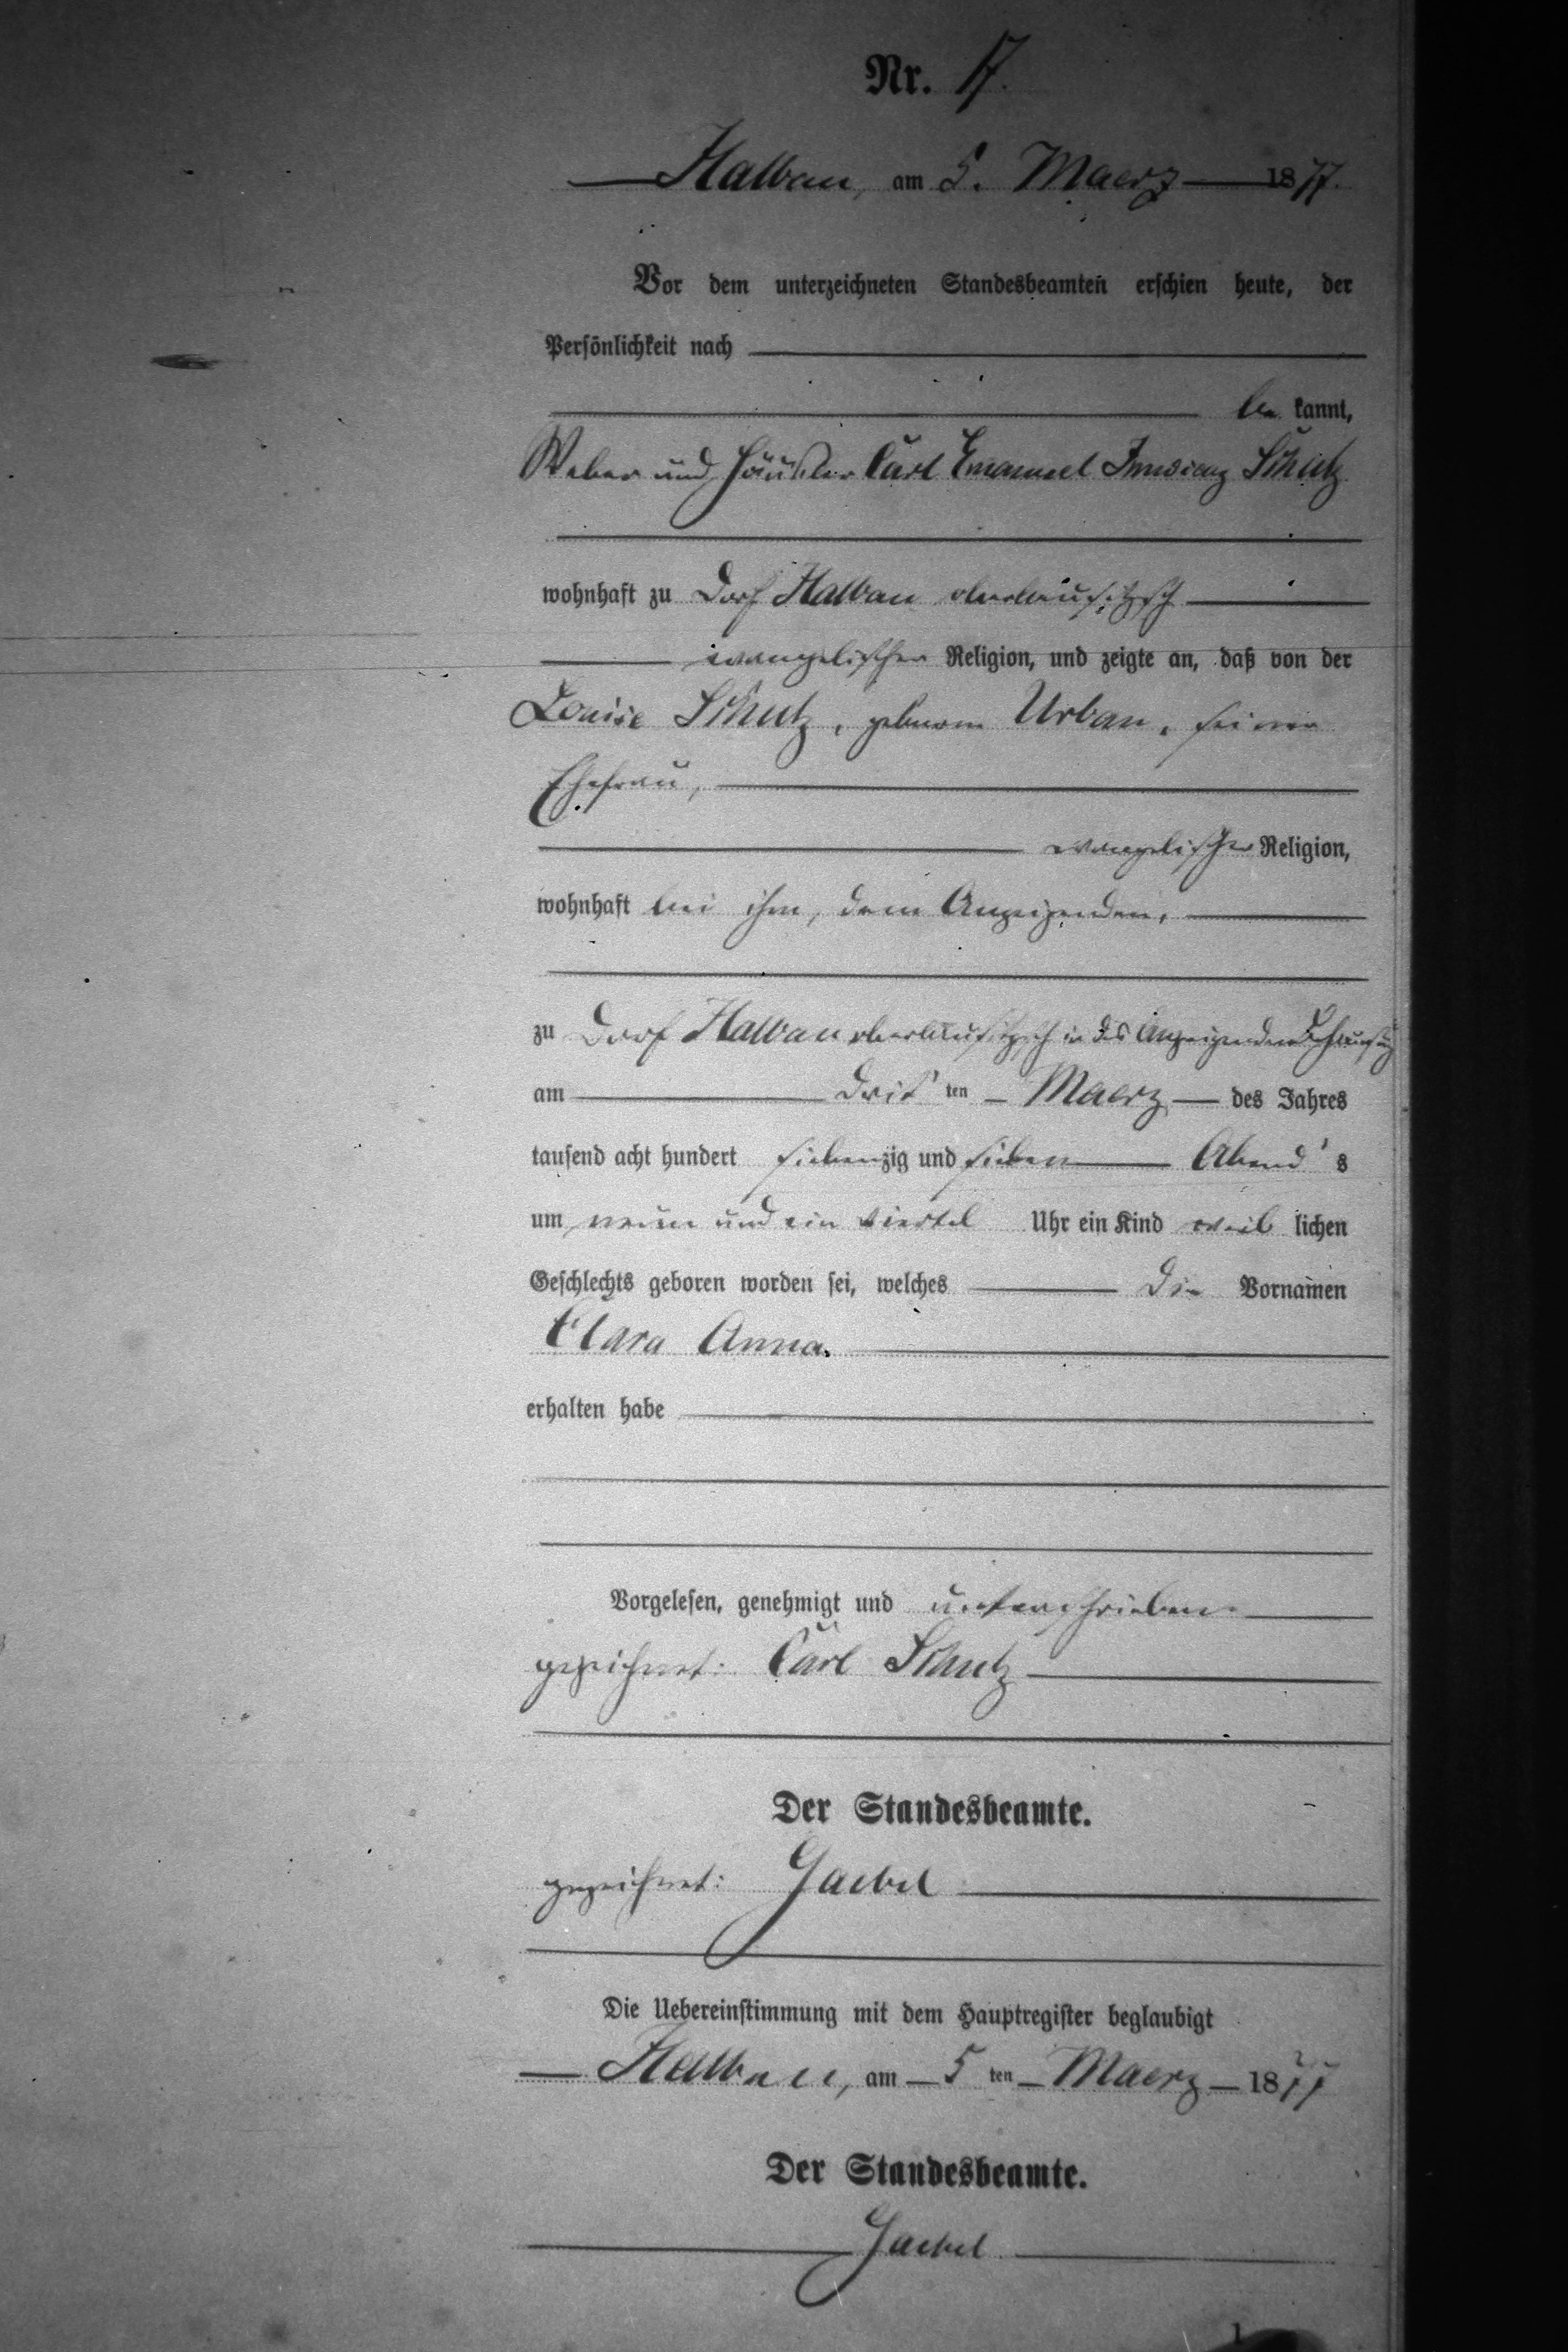 Nr. 17.
Halbau, am 5. Maerz 1877.
Vor dem unterzeichneten Standesbeamten erschien heute, der
Persönlichkeit nach
be kannt,
Weber und Häusler Carl Emanuel Schulz
wohnhaft zu Dorf Halbau oberlausitzisch
evangelischer Religion, und zeigte an, daß von der
Louise Schulz, geborne Urban, seiner
Ehefrau,
evangelischer Religion,
wohnhaft bei ihm, dem Anzeigenden,
zu Dorf Halbau oberlausitzisch in des Anzeigenden Behausung
am drit' ten Maerz des Jahres
tausend acht hundert siebenzig und sieben Abend's
um neun und ein viertel Uhr ein Kind weib lichen
Geschlechts geboren worden sei, welches die Vornamen
Clara Anna.
erhalten habe
Vorgelesen, genehmigt und unterschrieben.
gezeichnet: Carl Schulz
Der Standesbeamte.
gezeichnet: Jaekel
Die Uebereinstimmung mit dem Hauptregister beglaubigt
Halbau, am 5 ten Maerz 1877
Der Standesbeamte.
Jaekel
1